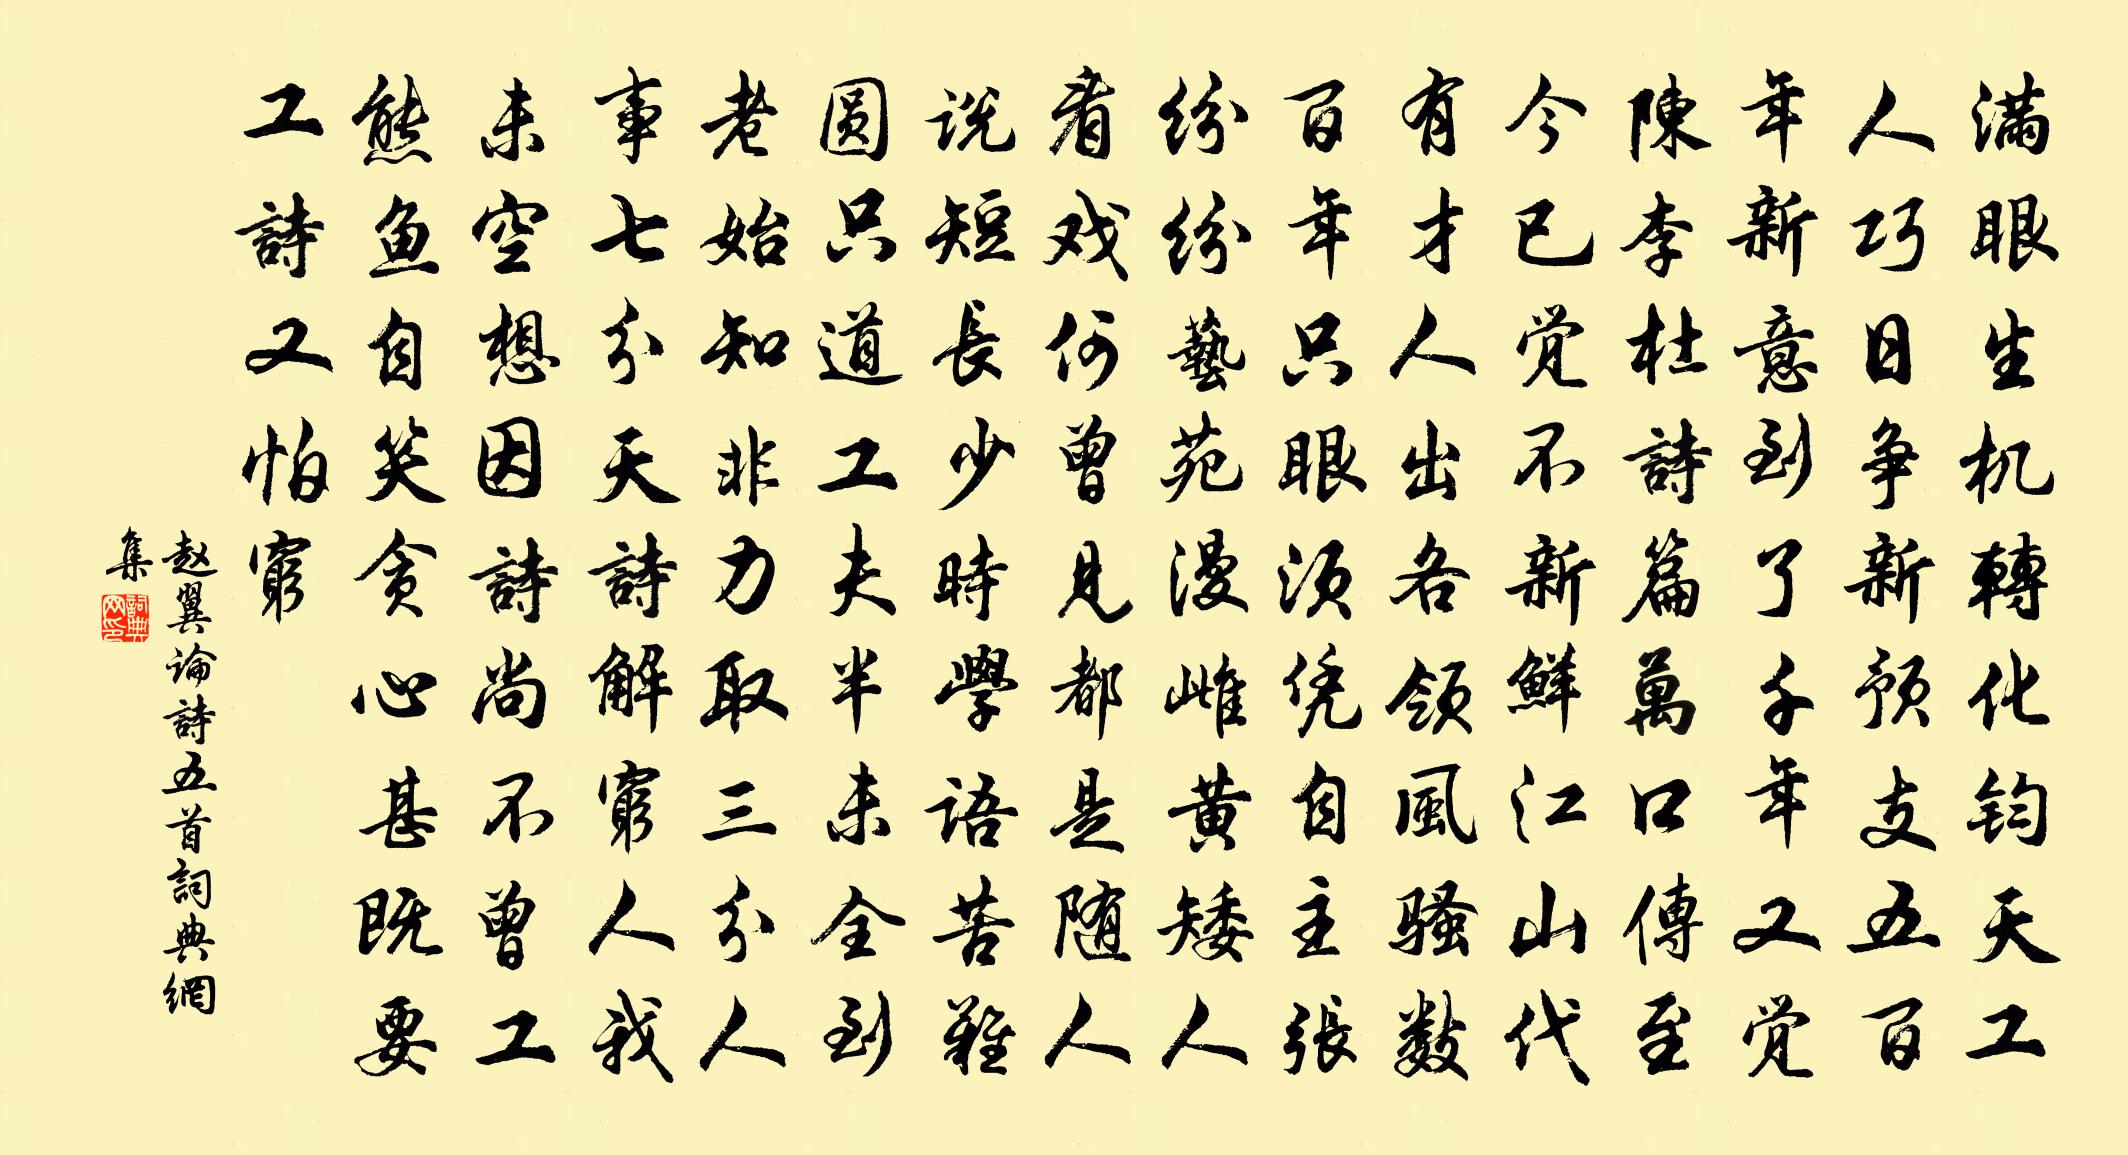 满眼生机轉化钧天工
人巧日争新预支五百
年新意到了千年又觉
陳李杜詩篇萬口傳至
今已觉不新鮮江山代
有才人出各领風骚数
百年只眼须凭自主張
纷纷藝苑漫雌黄矮人
看戏何曾見都是随人
说短長少時學语苦難
圆只道工夫半未全到
老始知非力取三分人
事七分天詩解窮人我
未空想因詩尚不曾工
熊鱼自笑贪心甚既要
工詩又怕窮
赵翼論詩五首詞典網
集
詞典網印